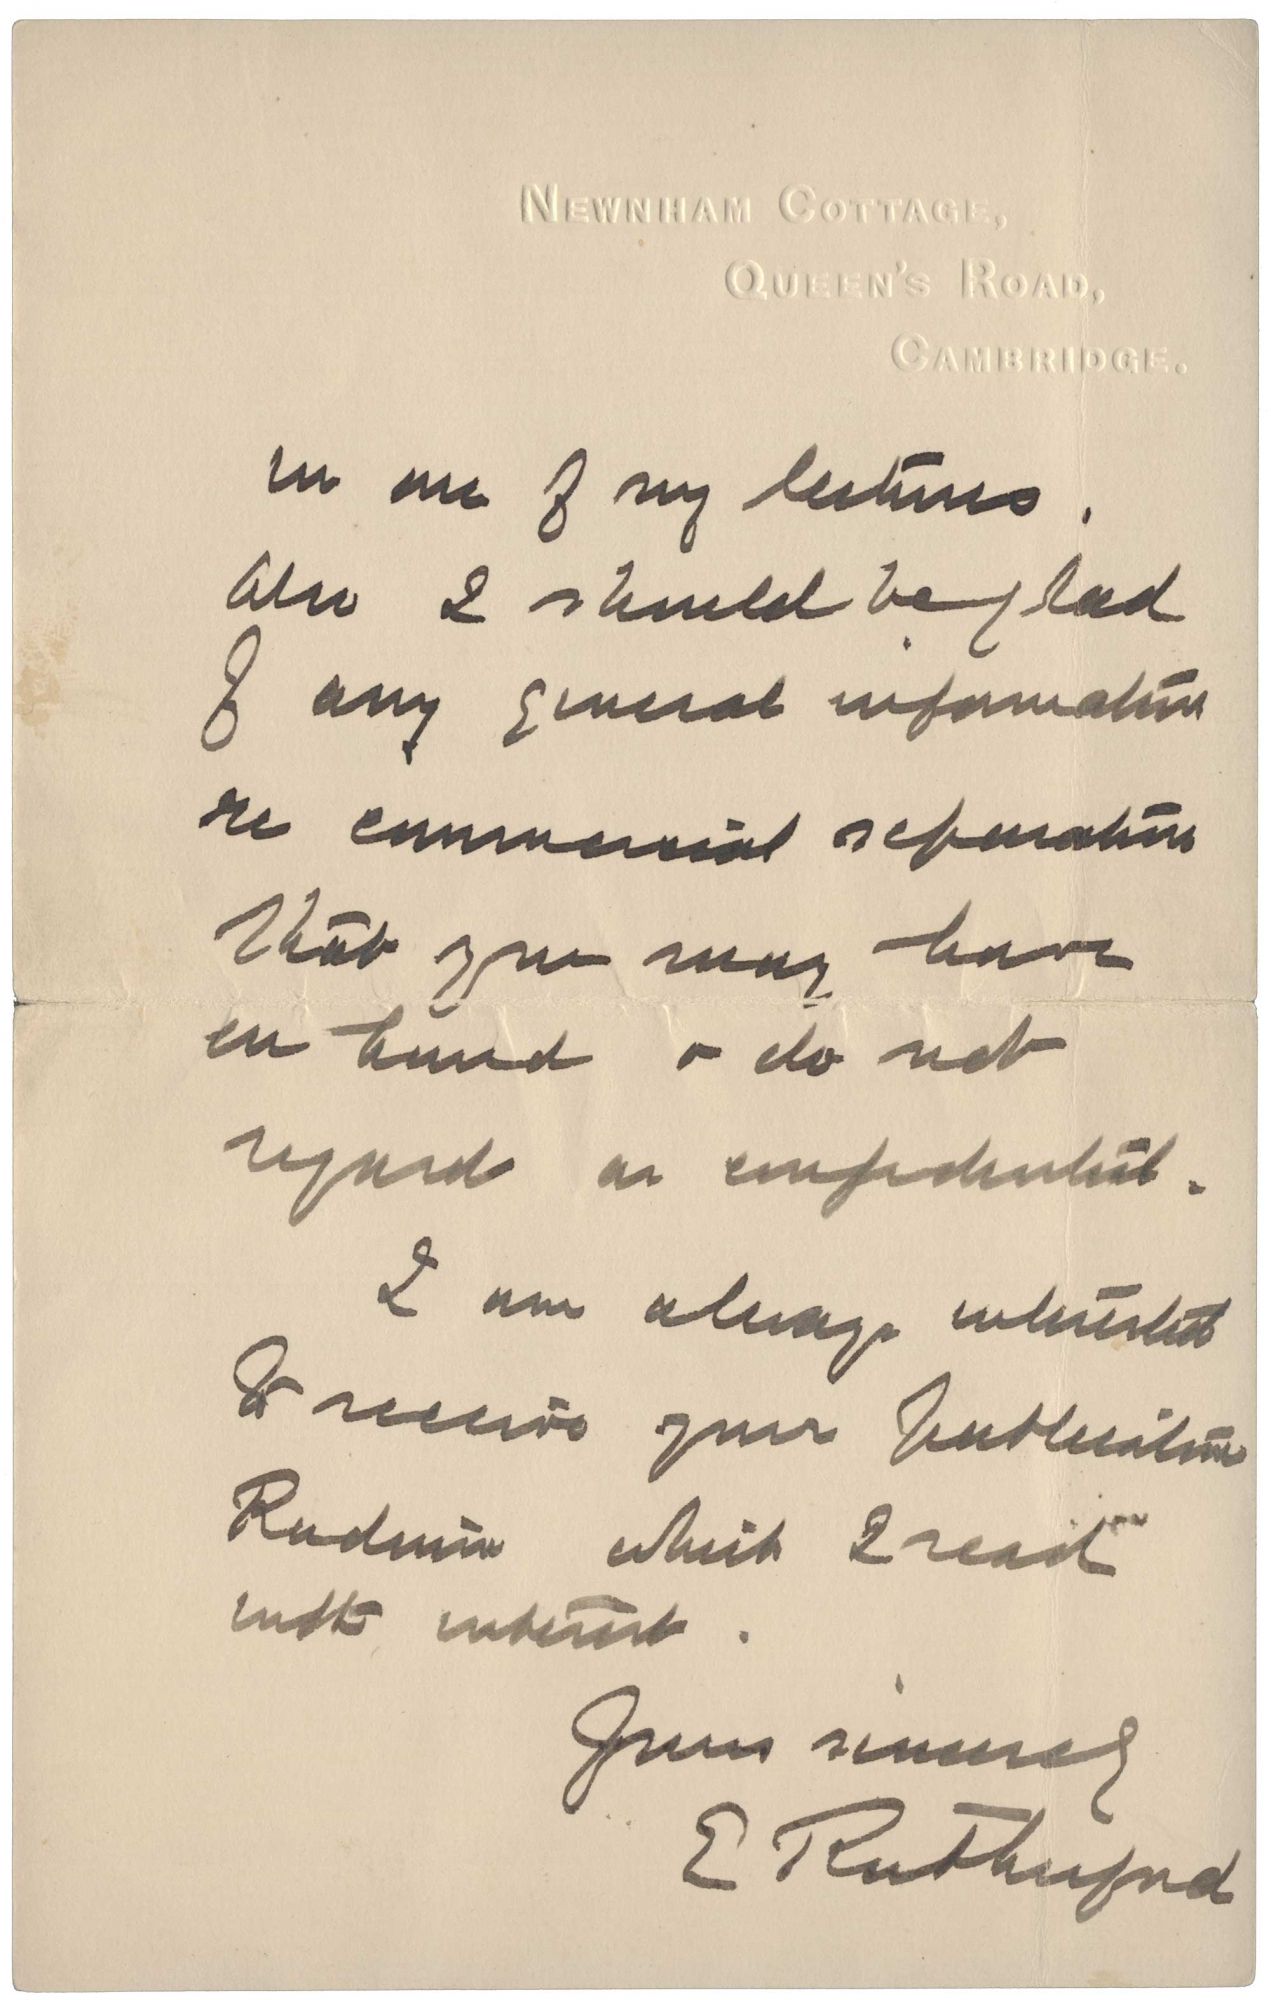 NEWNHAM COTTAGE,
QUEEN'S ROAD,
CAMBRIDGE.
in one of my lectures.
Also I should be glad
of any general information
re commercial separation
that you may have
on hand & do not
regard as confidential.
I am always interested
to receive your publication
Radium which I read
with interest.
Yours sincerely
E Rutherford